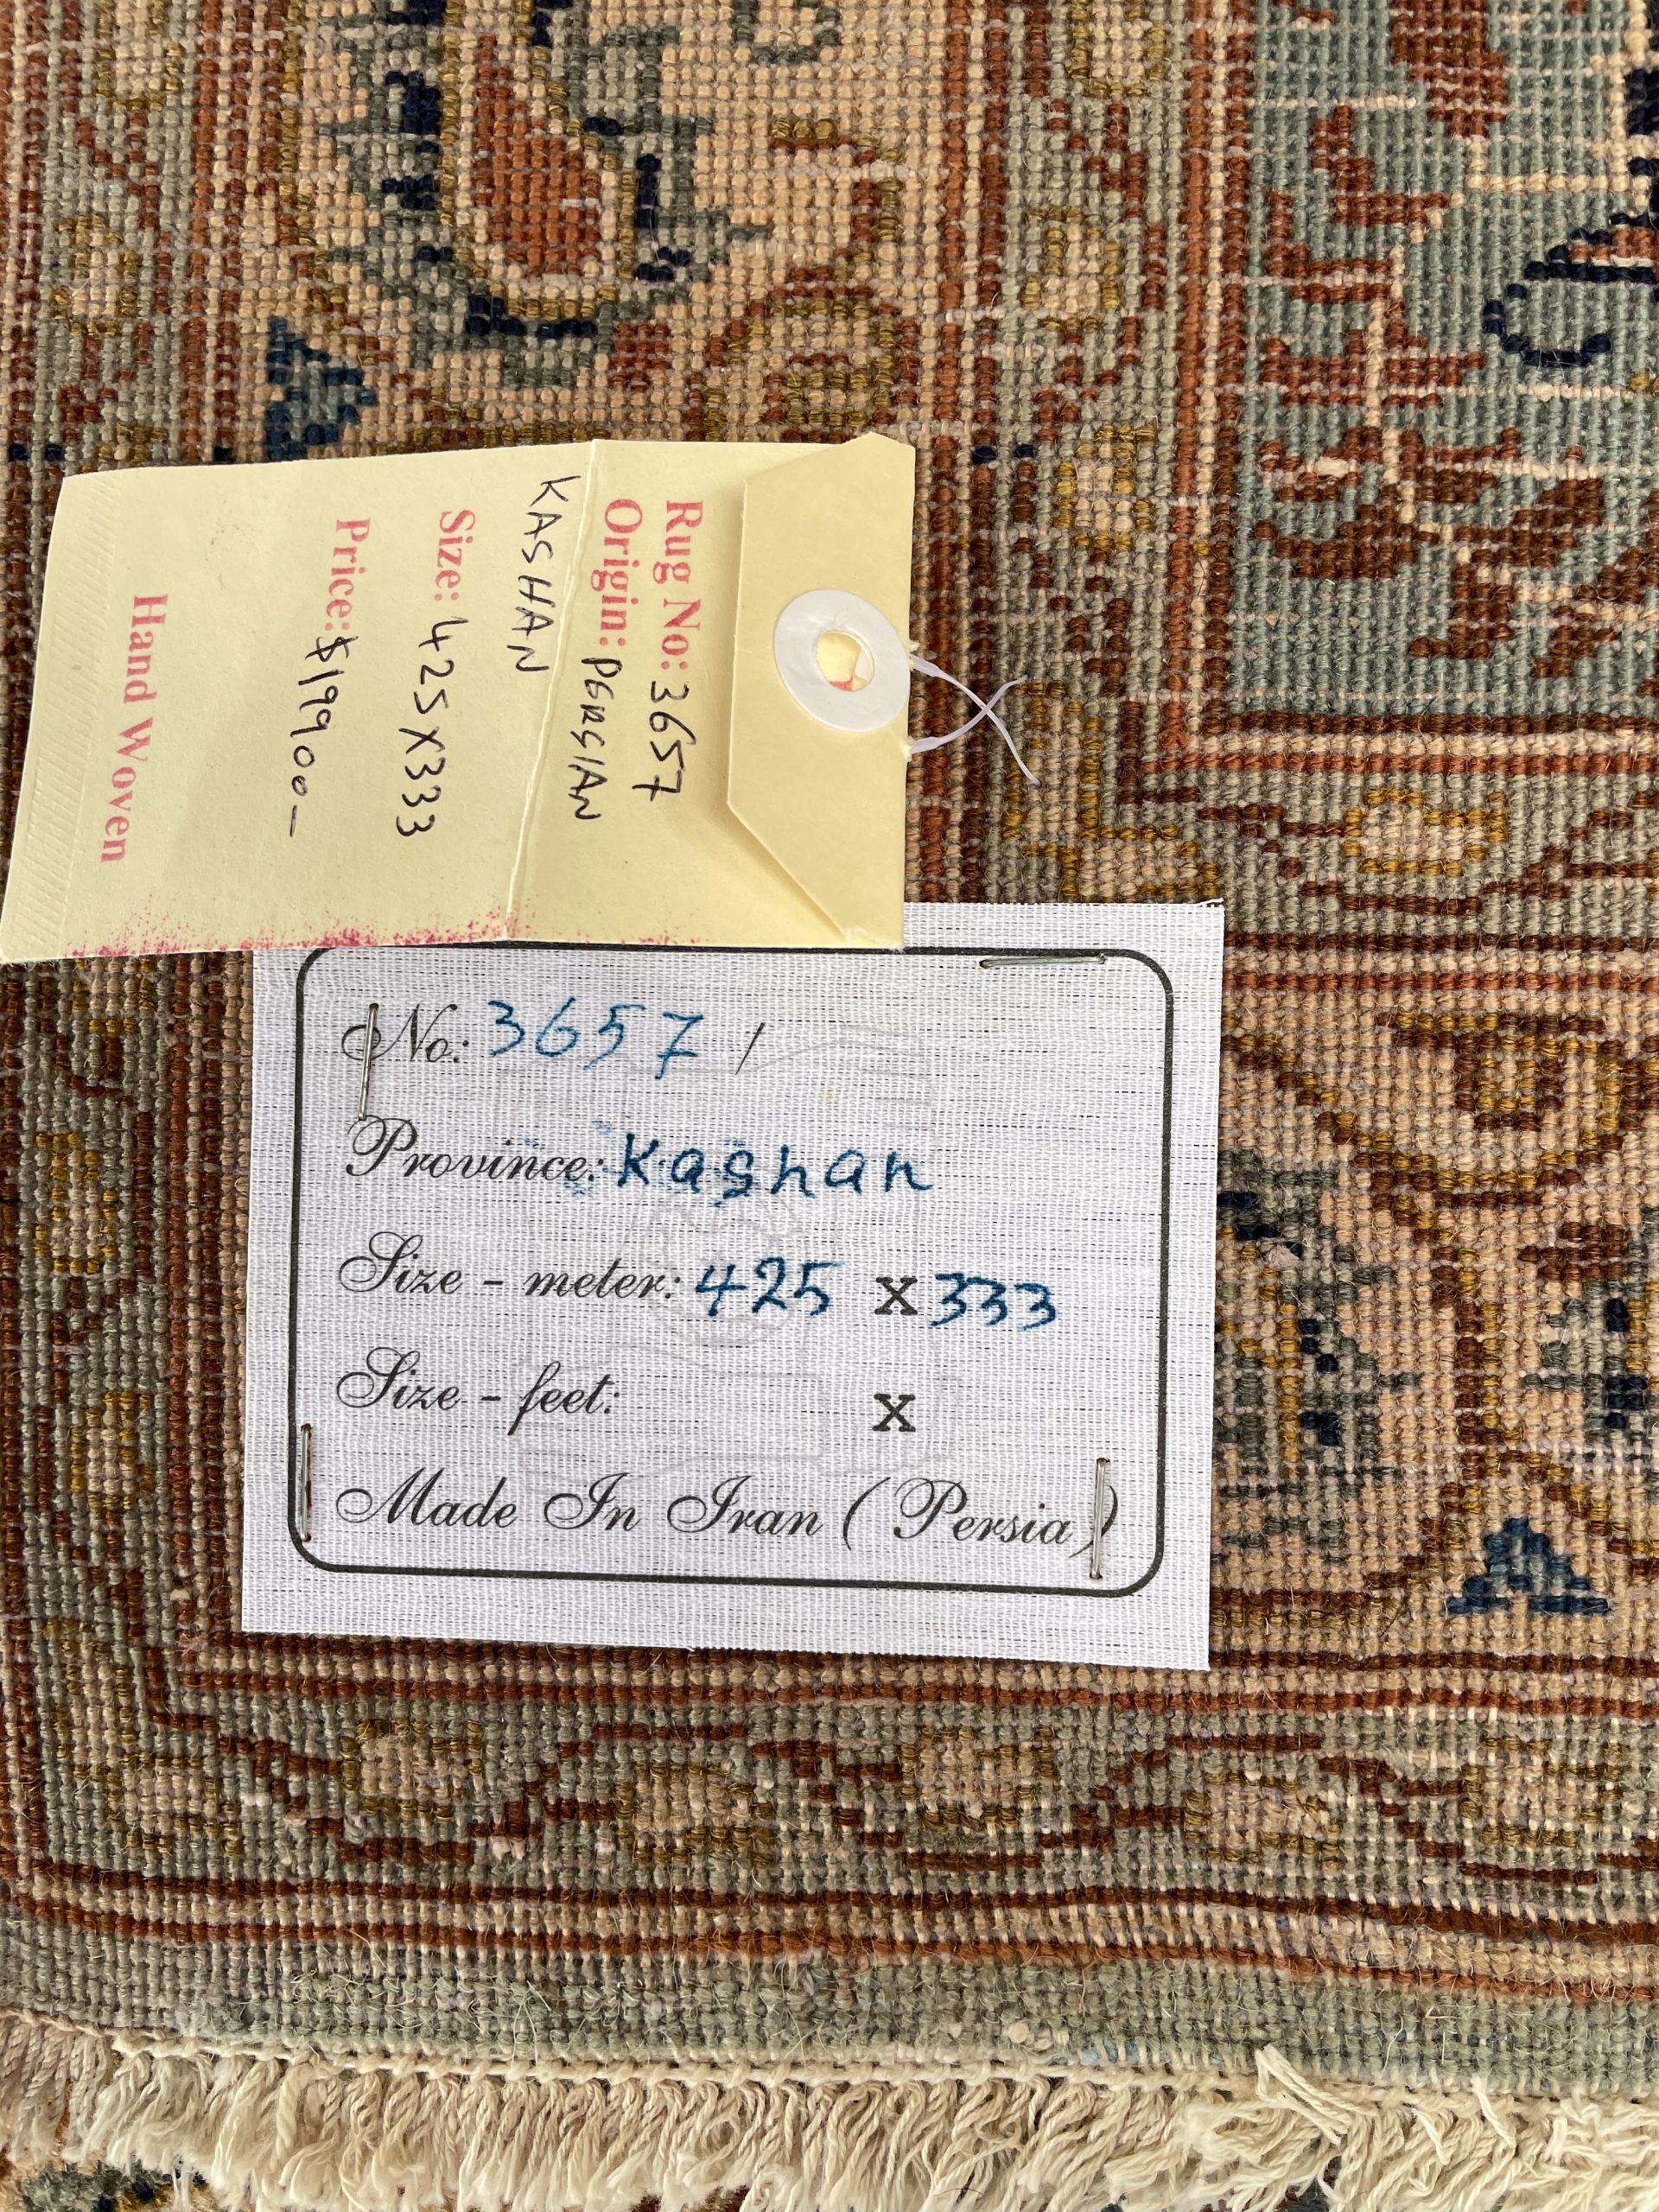 Rug No: 3657
Origin: PERSIAN
KASHAN
Size: 425X333
Price: $19900—
Hand Woven
No.: 3657 /
Province: Kashan
Size - meter: 425 x 333
Size - feet: x
Made In Iran ( Persia )